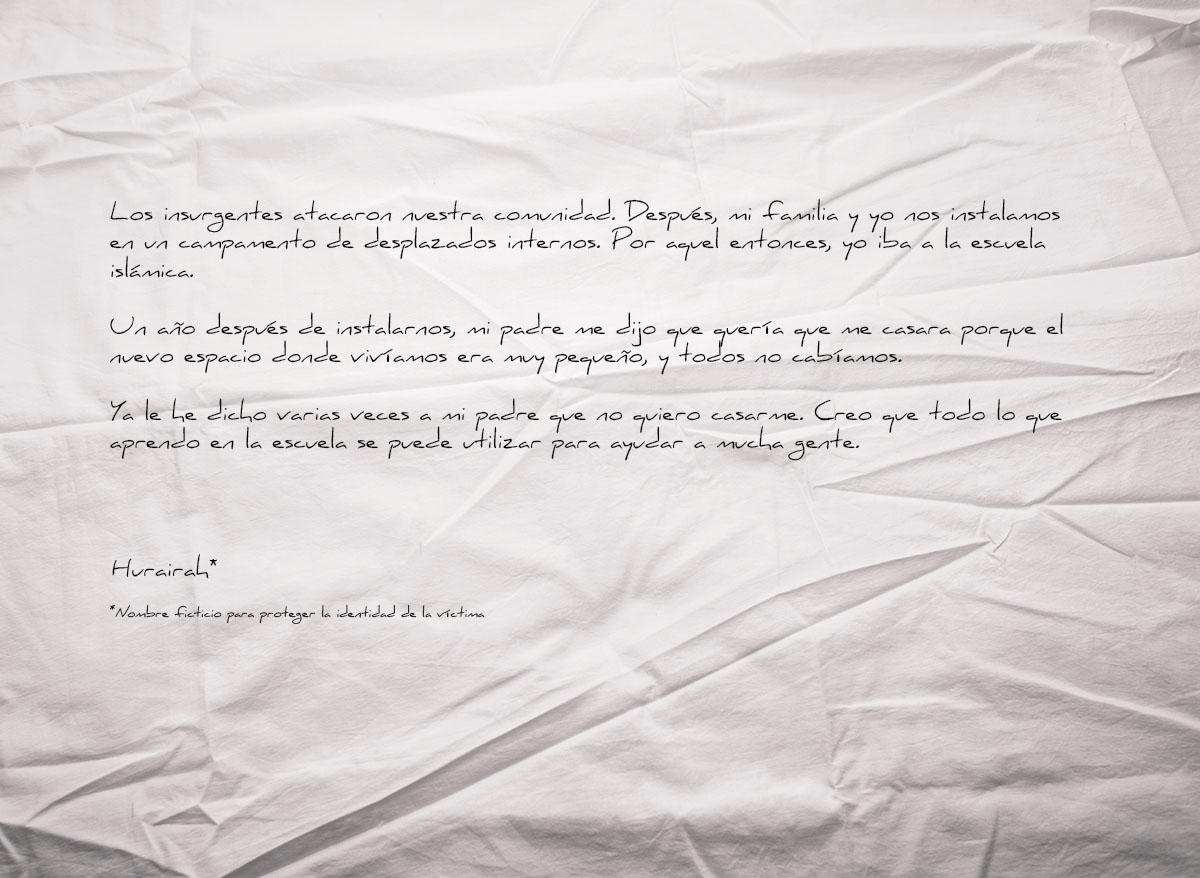 Los insurgentes atacaron nuestra comunidad. Después, mi familia y yo nos instalamos
en un campamento de desplazados internos. Por aquel entonces, yo iba a la escuela
islámica.
Un año después de instalarnos, mi padre me dijo que quería que me casara porque el
nuevo espacio donde vivíamos era muy pequeño, y todos no cabíamos.
Ya le he dicho varias veces a mi padre que no quiero casarme. Creo que todo lo que
aprendo en la escuela se puede utilizar para ayudar a mucha gente.
Hurairah*
*Nombre ficticio para proteger la identidad de la víctima